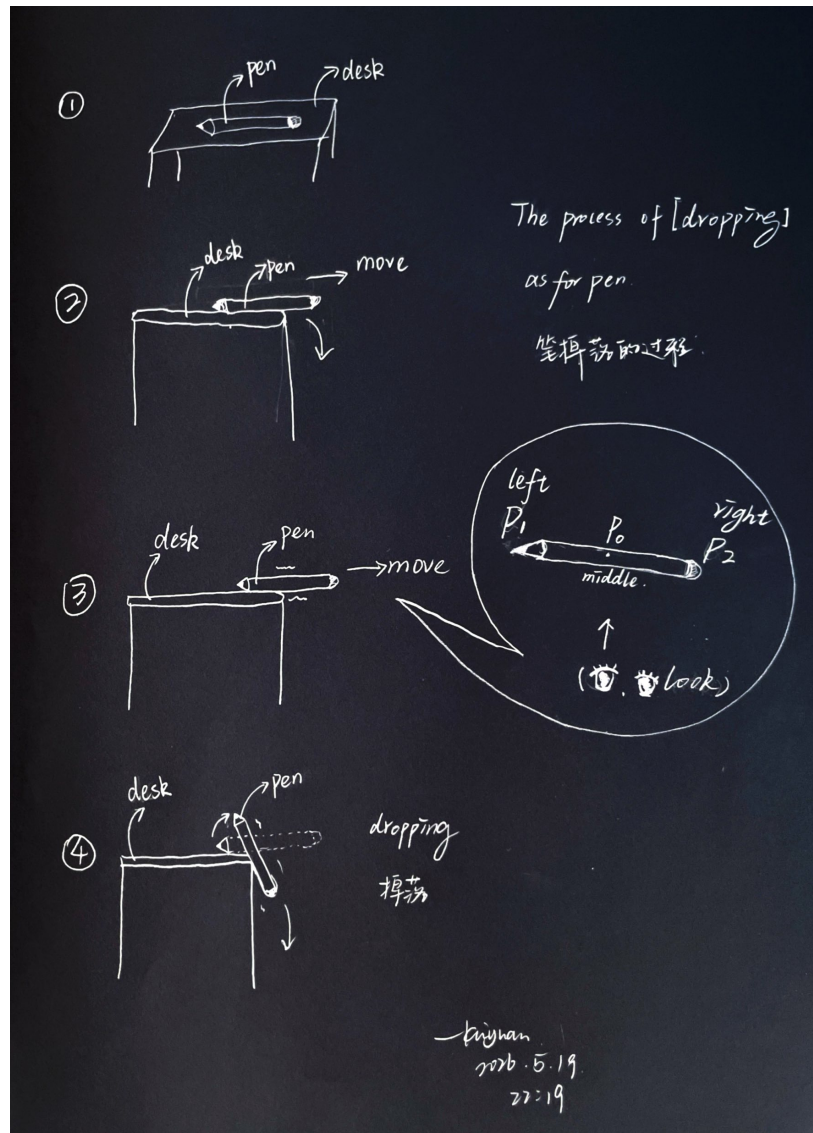 ①
pen
desk
②
desk
pen → move
The process of [dropping]
as for pen.
笔掉落的过程.
③
desk
pen
→ move
left
P1
P0
middle.
right
P2
↑
( , look)
④
desk
pen
dropping
掉落
2026.5.19
22:19